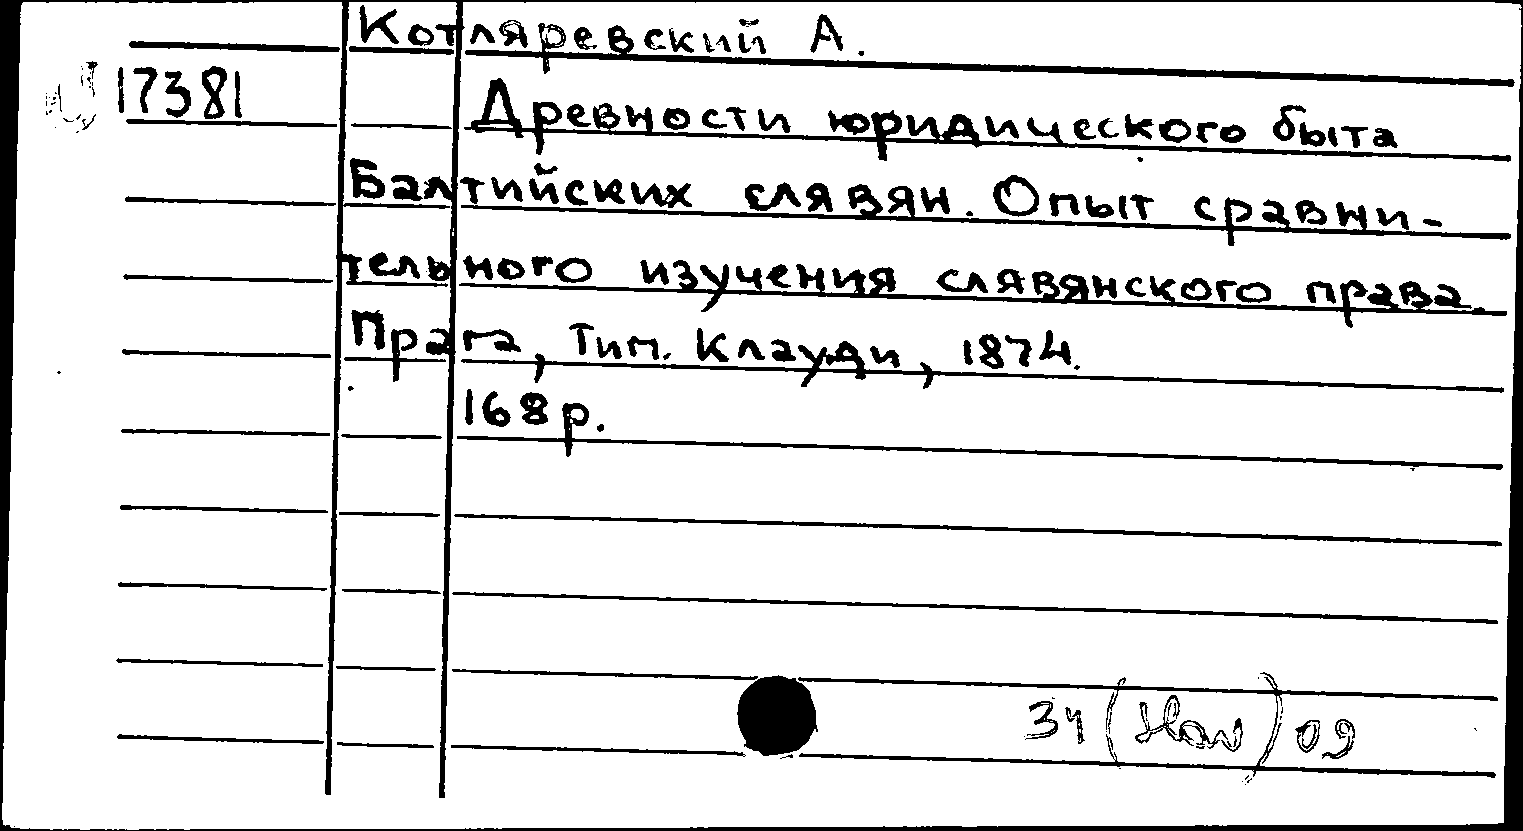 Котляревский А.
17381 Древности юридического быта
Балтийских славян. Опыт сравни-
тельного изучения славянского права.
Прага, Тип. Клауди, 1874.
168 р.
34 (Slav) 09